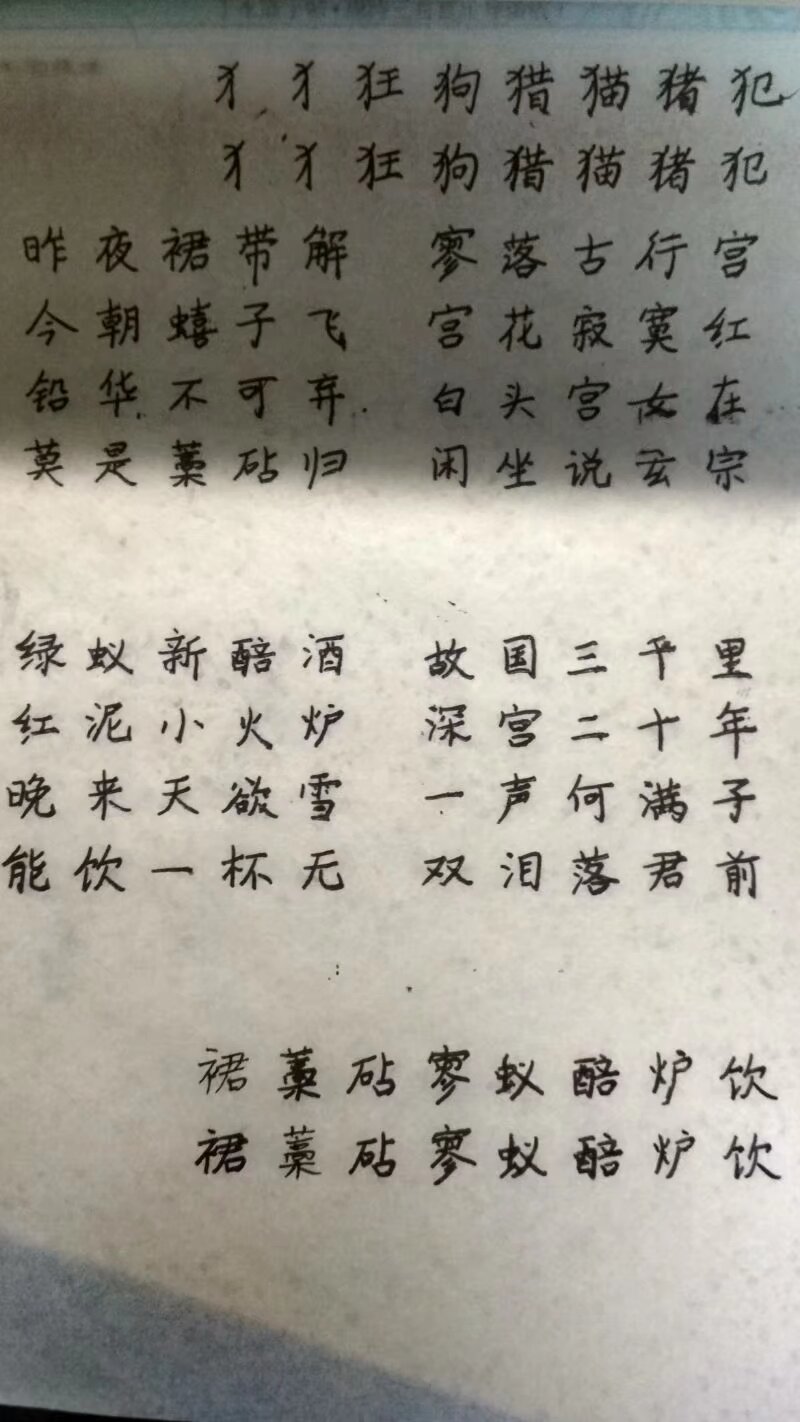 犭 犭 狂 狗 猎 猫 猪 犯
犭 犭 狂 狗 猎 猫 猪 犯
昨夜裙带解
今朝蟢子飞
铅华不可弃
莫是藁砧归
寥落古行宫
宫花寂寞红
白头宫女在
闲坐说玄宗
绿蚁新醅酒
红泥小火炉
晚来天欲雪
能饮一杯无
故国三千里
深宫二十年
一声何满子
双泪落君前
裙 藁 砧 寥 蚁 醅 炉 饮
裙 藁 砧 寥 蚁 醅 炉 饮